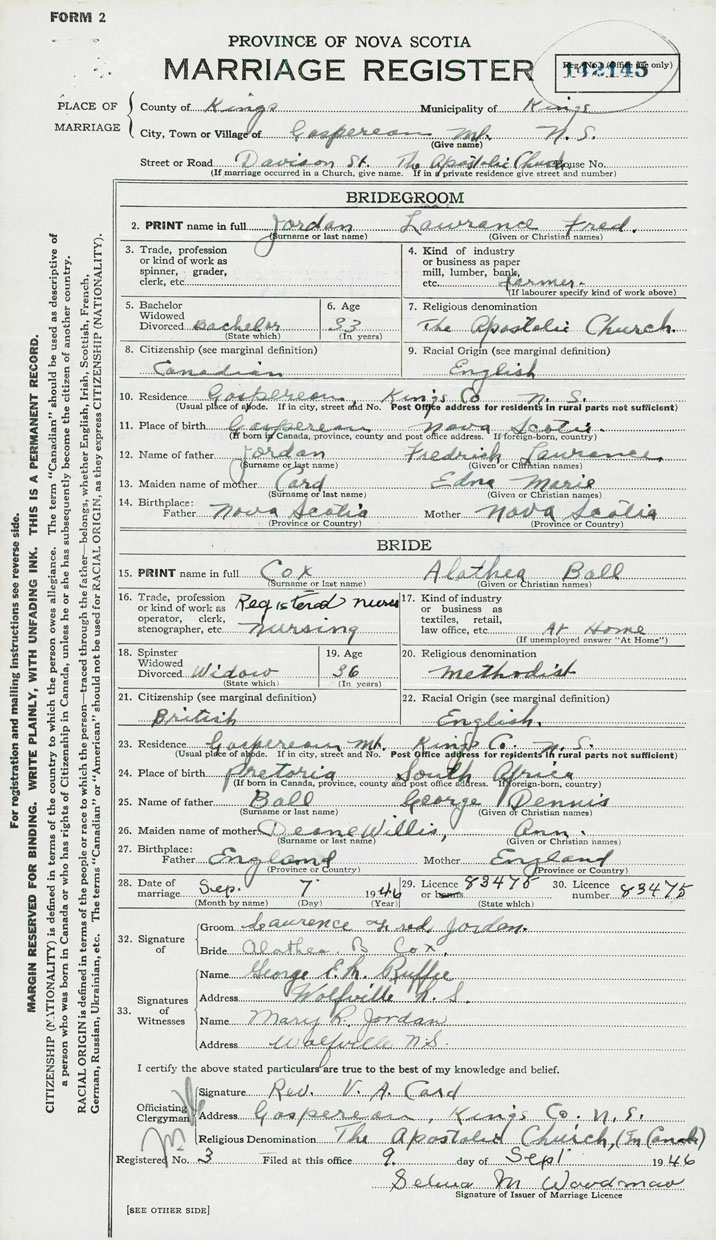 FORM 2
PROVINCE OF NOVA SCOTIA
MARRIAGE REGISTER
Reg. No. (Office use only)
142145
PLACE OF MARRIAGE
County of Kings Municipality of Kings
City, Town or Village of Gaspereau Mt. N. S.
(Give name)
Street or Road Davison St. The Apostolic Church House No.
(If marriage occurred in a Church, give name. If in a private residence give street and number)
BRIDEGROOM
2. PRINT name in full Jordan Lawrence Fred.
(Surname or last name) (Given or Christian names)
3. Trade, profession or kind of work as spinner, grader, clerk, etc.
4. Kind of industry or business as paper mill, lumber, bank, etc. farmer.
(If labourer specify kind of work above)
5. Bachelor Widowed Divorced Bachelor
(State which)
6. Age 33
(In years)
7. Religious denomination
The Apostolic Church.
8. Citizenship (see marginal definition)
Canadian
9. Racial Origin (see marginal definition)
English
10. Residence Gaspereau, Kings Co N. S.
(Usual place of abode. If in city, street and No. Post Office address for residents in rural parts not sufficient)
11. Place of birth Gaspereau Nova Scotia.
(If born in Canada, province, county and post office address. If foreign-born, country)
12. Name of father Jordan Fredrich Lawrence
(Surname or last name) (Given or Christian names)
13. Maiden name of mother Card Edna Marie
(Surname or last name) (Given or Christian names)
14. Birthplace: Father Nova Scotia Mother Nova Scotia
(Province or Country) (Province or Country)
BRIDE
15. PRINT name in full Cox Alathea Ball
(Surname or last name) (Given or Christian names)
16. Trade, profession or kind of work as operator, clerk, stenographer, etc. Registered nurse nursing
17. Kind of industry or business as textiles, retail, law office, etc. At Home
(If unemployed answer "At Home")
18. Spinster Widowed Divorced Widow
(State which)
19. Age 36
(In years)
20. Religious denomination
Methodist
21. Citizenship (see marginal definition)
British
22. Racial Origin (see marginal definition)
English.
23. Residence Gaspereau Mt. Kings Co. N. S.
(Usual place of abode. If in city, street and No. Post Office address for residents in rural parts not sufficient)
24. Place of birth Pretoria South Africa
(If born in Canada, province, county and post office address. If foreign-born, country)
25. Name of father Ball George Dennis
(Surname or last name) (Given or Christian names)
26. Maiden name of mother Deane Willis, Ann.
(Surname or last name) (Given or Christian names)
27. Birthplace: Father England Mother England
(Province or Country) (Province or Country)
28. Date of marriage Sep. 7 1946
(Month by name) (Day) (Year)
29. Licence or banns 83475
(State which)
30. Licence number 83475
32. Signature of
Groom Laurence Fred Jordan.
Bride Alathea B Cox,
33. Signatures of Witnesses
Name George E. M. Ruffie
Address Wolfville N. S.
Name Mary R. Jordan
Address Wolfville N.S.
I certify the above stated particulars are true to the best of my knowledge and belief.
Officiating Clergyman
Signature Rev. V. A. Card
Address Gaspereau, Kings Co. N. S.
Religious Denomination The Apostolic Church, (In Canada)
Registered No. 3 Filed at this office 9. day of Sept 1946
Selma M Woodman
Signature of Issuer of Marriage Licence
[SEE OTHER SIDE]
For registration and mailing instructions see reverse side.
MARGIN RESERVED FOR BINDING. WRITE PLAINLY, WITH UNFADING INK. THIS IS A PERMANENT RECORD.
CITIZENSHIP (NATIONALITY) is defined in terms of the country to which the person owes allegiance. The term "Canadian" should be used as descriptive of
a person who was born in Canada or who has rights of Citizenship in Canada, unless he or she has subsequently become the citizen of another country.
RACIAL ORIGIN is defined in terms of the people or race to which the person—traced through the father—belongs, whether English, Irish, Scottish, French,
German, Russian, Ukrainian, etc. The terms "Canadian" or "American" should not be used for RACIAL ORIGIN, as they express CITIZENSHIP (NATIONALITY).